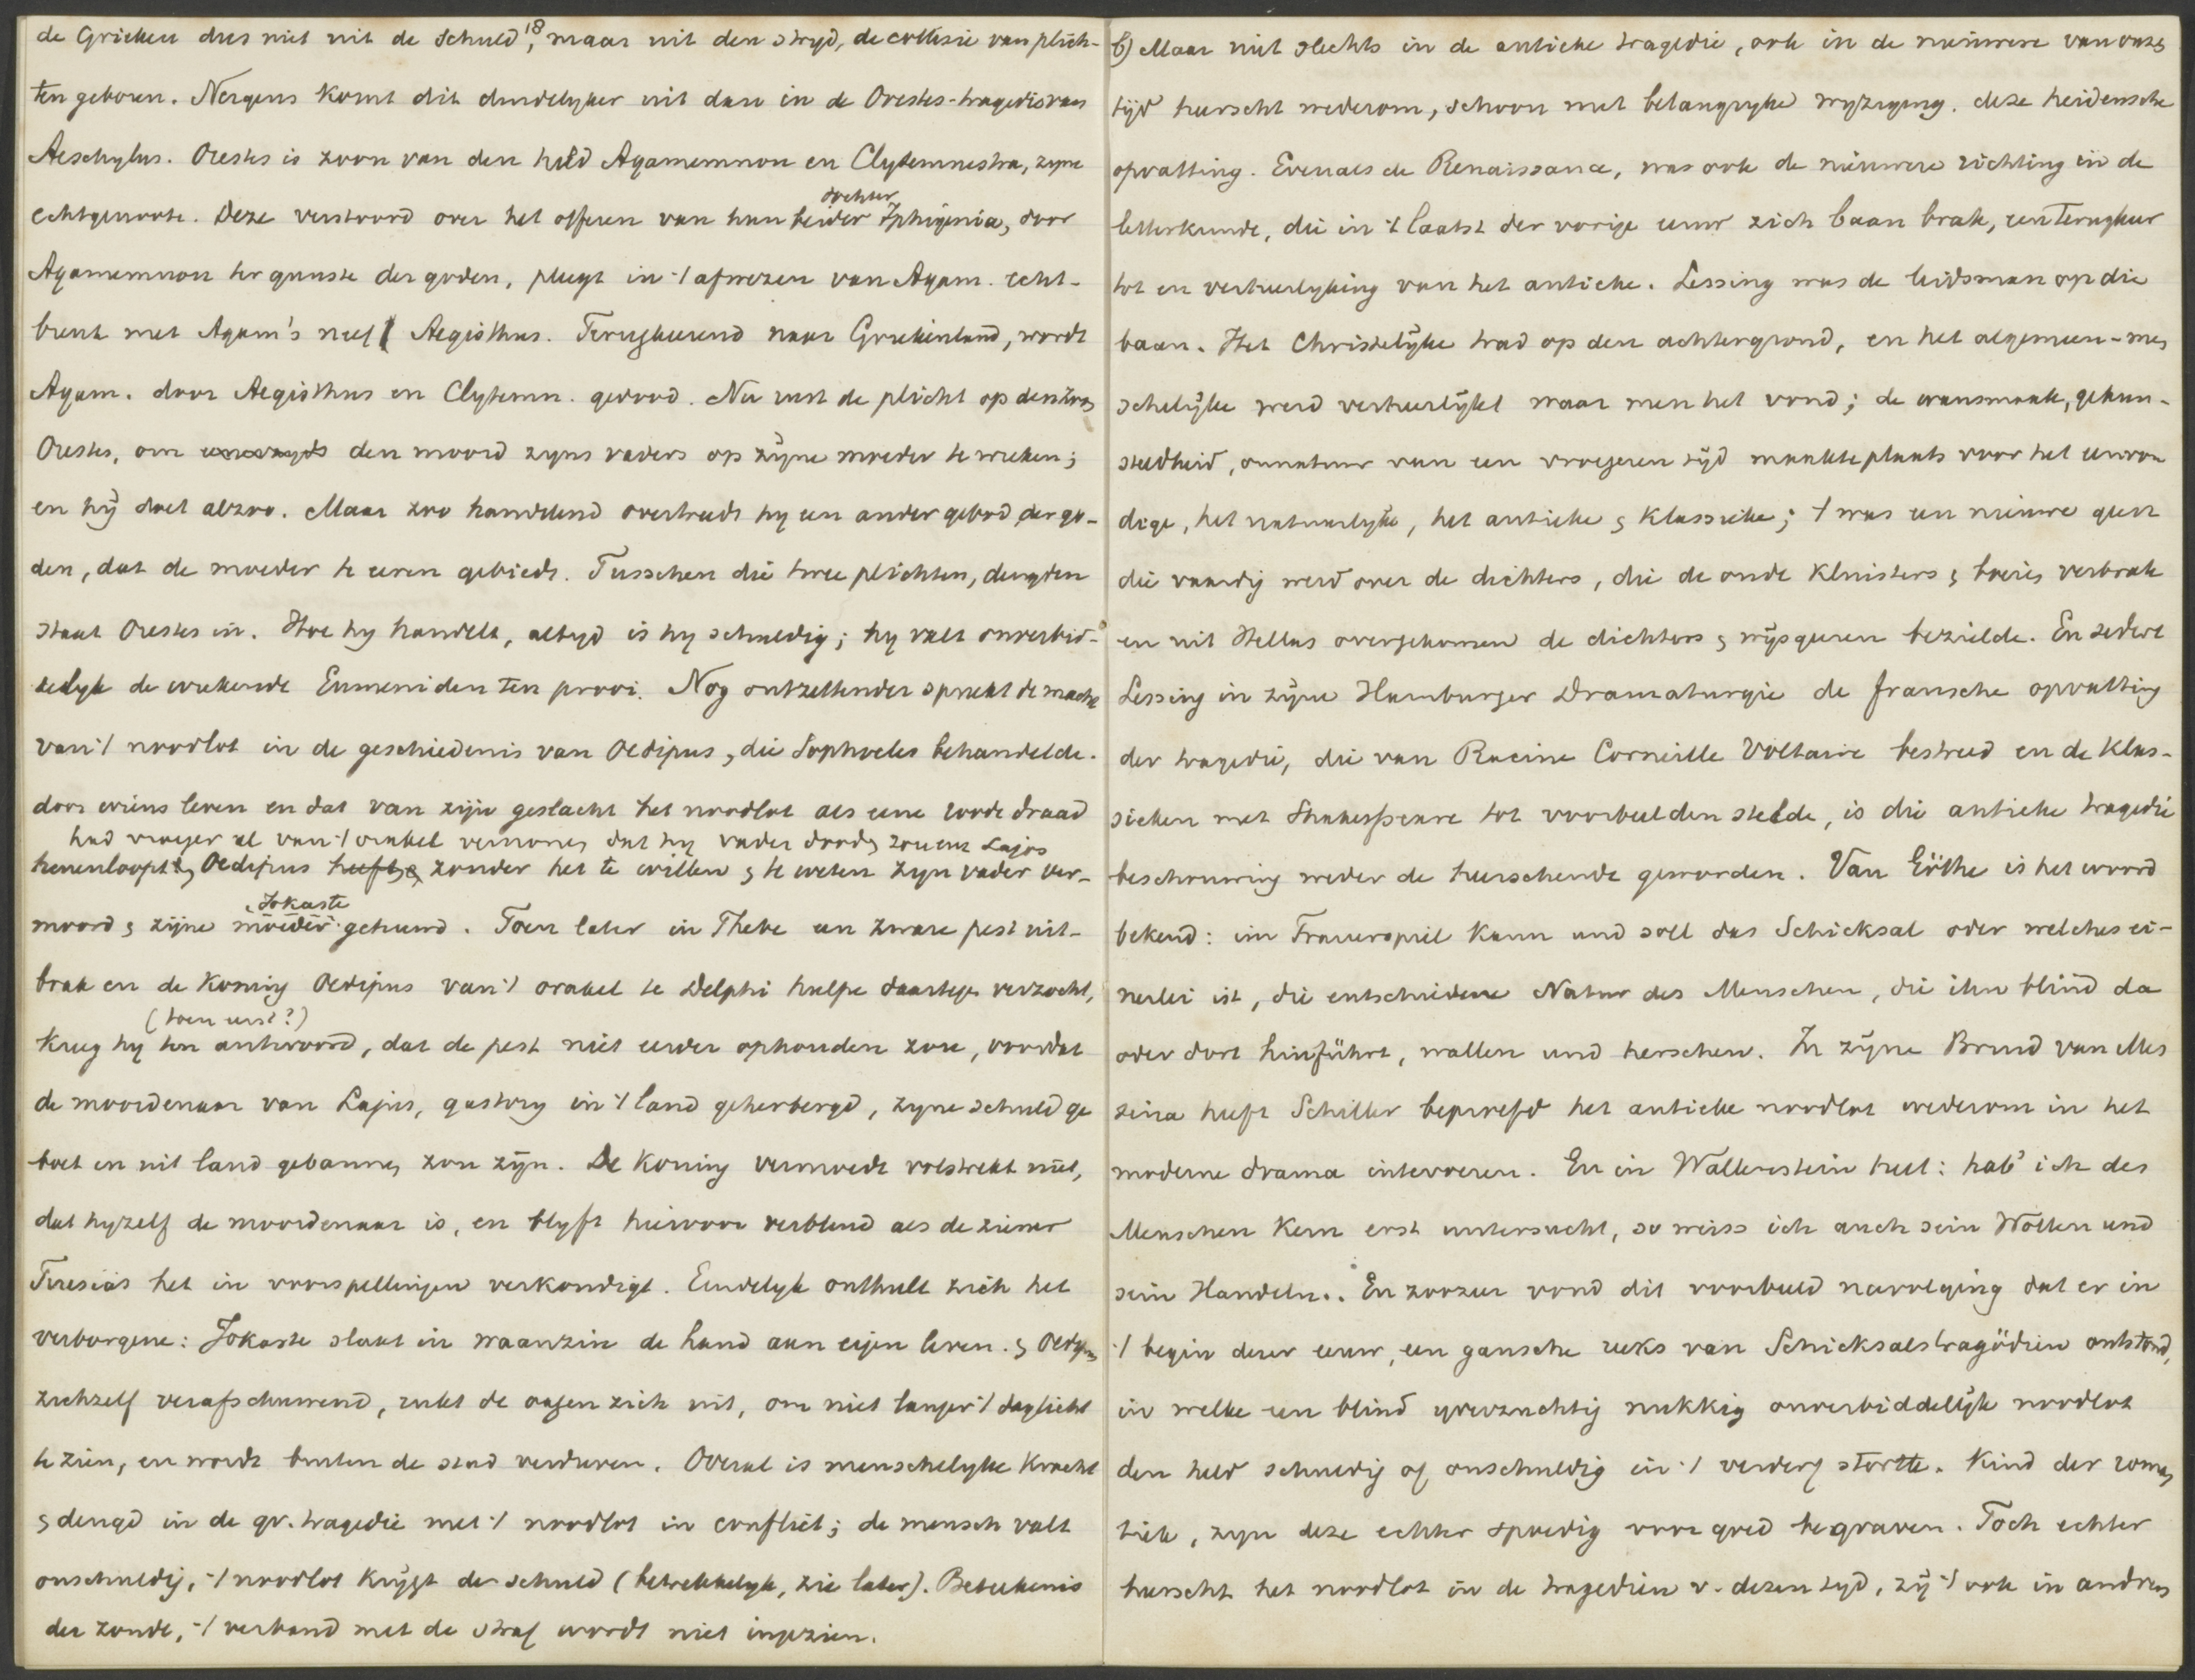 de Grieken dus niet uit de schuld 18, maar uit den stryd, de collisie van plich-
ten geboren. Nergens komt dit duidelyker uit dan in de Orestes-tragedie van
Aeschylus. Orestes is zoon van den held Agamemnon en Clytemnestra, zyne
echtgenoote. Deze verstoord over het offeren van hun beider dochter Iphigenia, door
Agamemnon ter gunste der goden, pleegt in 't afwezen van Agam. echt-
breuk met Agam's neef Aegisthus. Terugkeerend naar Griekenland, wordt
Agam. door Aegisthus en Clytemn. gedood. Nu rust de plicht op den zoon
Orestes, om den moord zyns vaders op zijne moeder te wreken;
en hij doet alzoo. Maar zoo handelend overtreedt hy een ander gebod der go-
den, dat de moeder te eeren gebiedt. Tusschen die twee plichten, deugden
staat Orestes in. Hoe hy handelt, altyd is hy schuldig; hy valt onverbid-
delyk de wrekende Eumeniden ten prooi. Nog ontzettender spreekt de macht
van 't noodlot in de geschiedenis van Oedipus, die Sophocles behandelde.
door wiens leven en dat van zijn geslacht het noodlot als eene roode draad
had vroeger al van 't orakel vernomen dat hy vader dooden zou enz Lajos
henenloopt. Oedipus heeft zonder het te willen & te weten zyn vader ver-
moord & zijne moeder Jokaste gehuwd. Toen later in Thebe een zware pest uit-
brak en de koning Oedipus van 't orakel te Delphi hulpe daartegen verzocht,
(toen eerst?)
kreeg hy ten antwoord, dat de pest niet eerder ophouden zou, voordat
de moordenaar van Lajus, gastvry in 't land geherbergd, zyne schuld ge
boet en uit land gebannen zou zijn. De koning vermoedt volstrekt niet,
dat hyzelf de moordenaar is, en blyft hiervoor verblind als de ziener
Tiresias het in voorspellingen verkondigt. Eindelyk onthult zich het
verborgene: Jokaste slaat in waanzin de hand aan eigen leven. & Oedipus
zichzelf verafschuwend, rukt de oogen zich uit, om niet langer 't daglicht
te zien, en wordt buiten de stad verdreven. Overal is menschelyke kracht
& deugd in de gr. tragedie met 't noodlot in conflict; de mensch valt
onschuldig, 't noodlot krijgt de schuld (betrekkelyk, zie later). Beteekenis
der zonde, 't verband met de straf wordt niet ingezien.
b) Maar niet slechts in de antieke tragedie, ook in de nieuwere van onze
tijd heerscht wederom, schoon met belangryke wyziging, deze heidensche
opvatting. Evenals de Renaissance, was ook de nieuwere richting in de
letterkunde, die in 't laatst der vorige eeuw zich baan brak, een terugkeer
tot en verheerlyking van het antieke. Lessing was de leidsman op die
baan. Het Christelijke trad op den achtergrond, en het algemeen-men
schelijke werd verheerlijkt waar men het vond; de wansmaak, gekun-
steldheid, onnatuur van een vroegeren tijd maakte plaats voor het eenvou
dige, het natuurlyke, het antieke & klassieke; 't was een nieuwe geest
die vaardig werd over de dichters, die de oude kluisters & boeien verbrak
en uit Hellas overgekomen de dichters & wijsgeeren bezielde. En sedert
Lessing in zijne Hamburger Dramaturgie de fransche opvatting
der tragedie, die van Racine Corneille Voltaire bestreed en de klas-
sieken met Shakespeare tot voorbeelden stelde, is die antieke tragedie
beschouwing weder de heerschende geworden. Van Göthe is het woord
bekend: im Trauerspiel kann und soll das Schicksal oder welches ei-
nerlei ist, die entschiedene Natur des Menschen, die ihn blind da
oder dort hinführt, walten und herschen. In zijne Braud van Mes
sina heeft Schiller beproefd het antieke noodlot wederom in het
moderne drama intevoeren. En in Wallenstein heet: hab' ich des
Menschen Kern erst untersucht, so weiss ich auch sein Wollen und
sein Handeln.. En zoozeer vond dit voorbeeld navolging dat er in
't begin dezer eeuw, een gansche reeks van Schicksalstragödien ontstond,
in welke een blind grenzuchtig nukkig onverbiddelijk noodlot
den held schuldig of onschuldig in 't verderf stortte. Kind der roman
tiek, zyn deze echter spoedig voor goed begraven. Toch echter
heerscht het noodlot in de tragedien v. dezen tyd, zij 't ook in andren